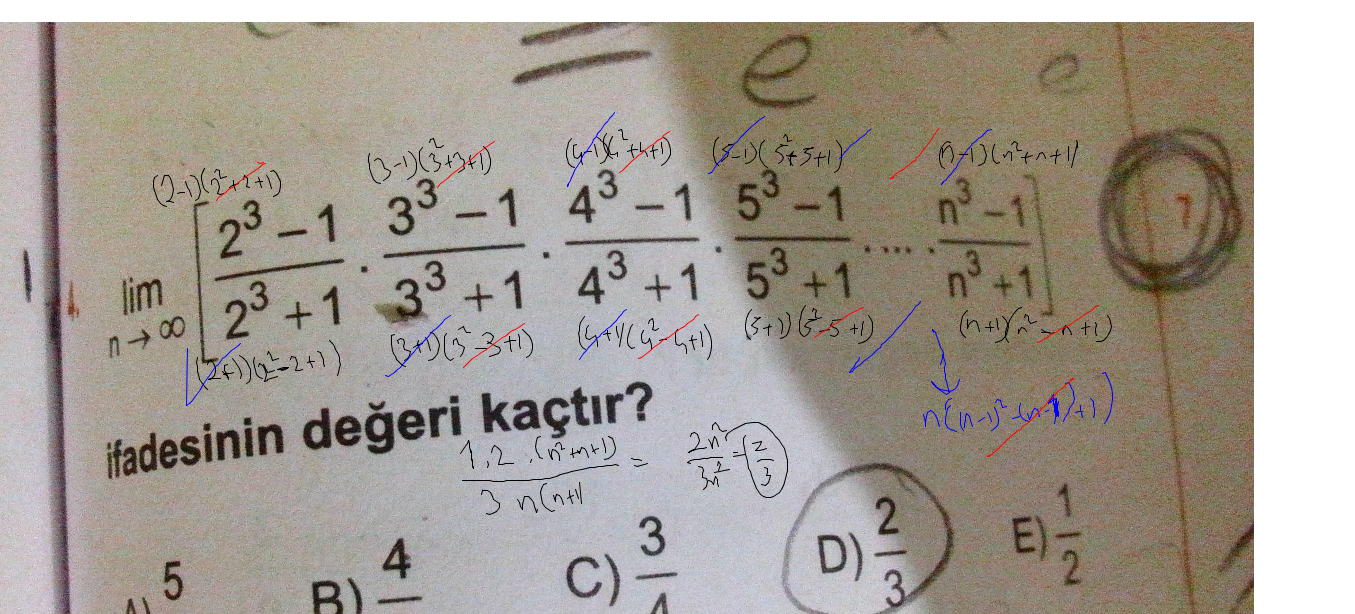 e e
(2-1)(2²+2+1) (3-1)(3²+3+1) (4-1)(4²+4+1) (5-1)(5²+5+1) (n-1)(n²+n+1)
lim n→∞ [ (2³ − 1)/(2³ + 1) · (3³ − 1)/(3³ + 1) · (4³ − 1)/(4³ + 1) · (5³ − 1)/(5³ + 1) ..... (n³ − 1)/(n³ + 1) ] 7
(2+1)(2²-2+1) (3+1)(3²-3+1) (4+1)(4²-4+1) (5+1)(5²-5+1) (n+1)(n²-n+1)
n((n-1)²-(n-1)+1)
ifadesinin değeri kaçtır?
1.2.(n²+n+1) / 3 n(n+1) = 2n²/3n² = 2/3
A) 5 B) 4 C) 3/4 D) 2/3 E) 1/2